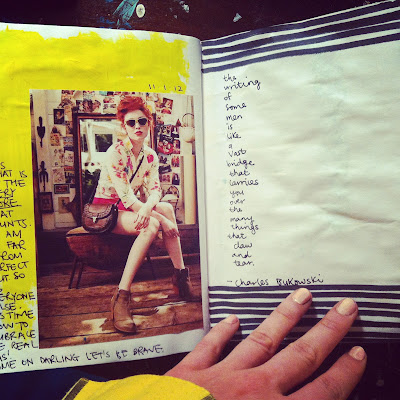 11.1.12
S
HAT IS
THE
ERY
ORE.
AT
OUNTS.
AM
FAR
FROM
RFECT
UT SO
ERYONE
LSE.
S TIME
OW TO
MBRACE
E REAL
S!
ME ON DARLING LET'S BE BRAVE.
the
writing
of
some
men
is
like
a
vast
bridge
that
carries
you
over
the
many
things
that
claw
and
tear.
~Charles Bukowski